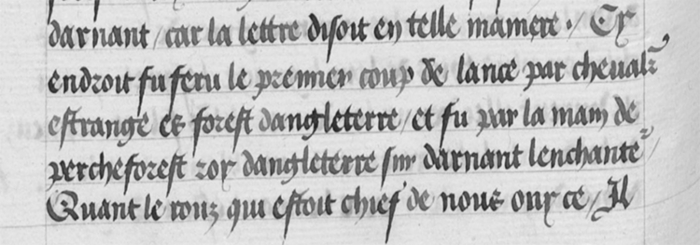 darnant / car la lettre disoit en telle maniere · / Cy
endroit fu feru le premier coup de lance par chevalr̃
estrange es forest dangleterre / et fu par la main de
percheforest roy dangleterre sur darnant lenchante͛ /
Quant le rony qui estoit chief de nous ouy ce / Il